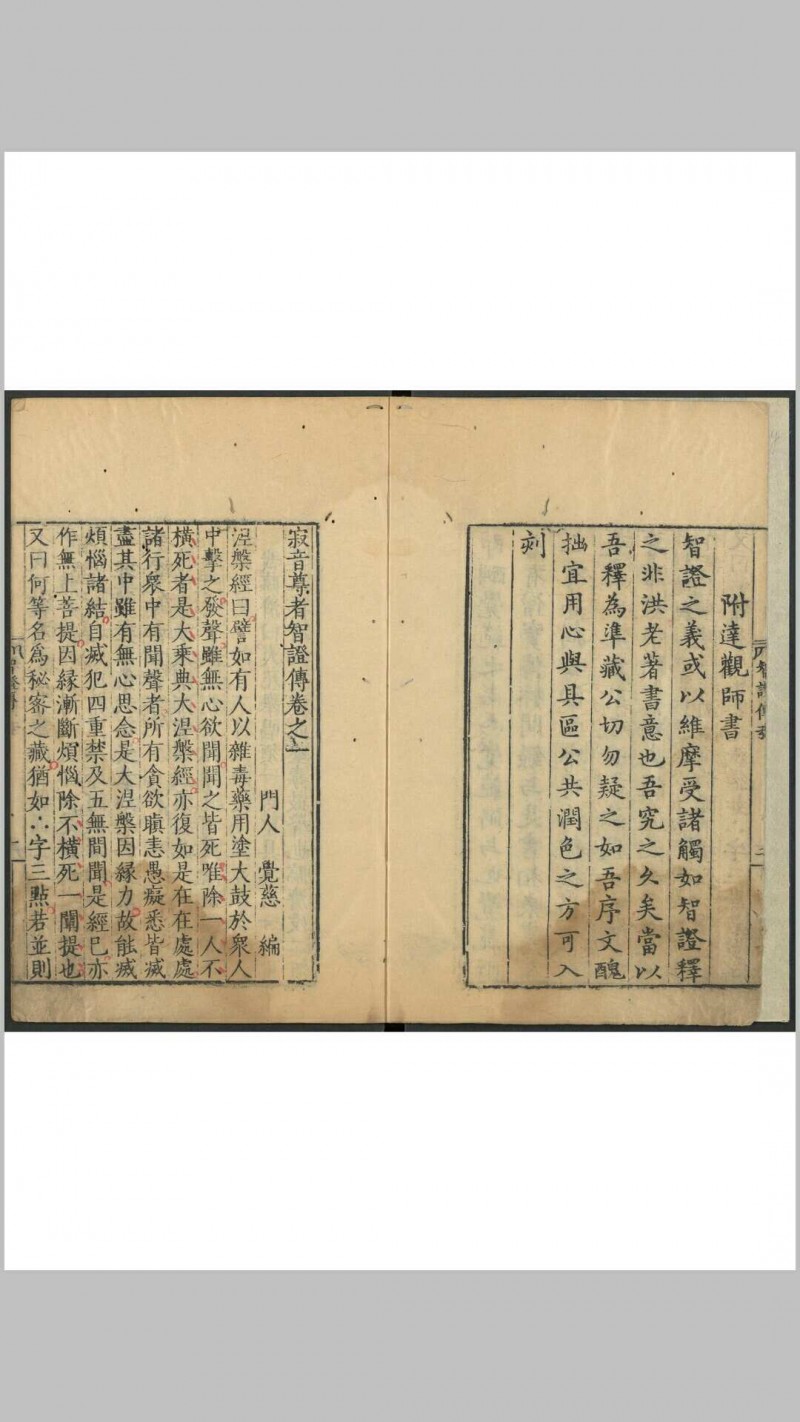 附達觀師書
智證之義或以維摩受諸觸如智證釋
之非洪老著書意也吾究之久矣當以
吾釋為準藏公切勿疑之如吾序文醜
拙宜用心與具區公共潤色之方可入
刻
寂音尊者智證傳卷之一
門人 覺慈 編
涅槃經曰譬如有人以雜毒藥用塗大鼓於衆人
中擊之發聲雖無心欲聞聞之皆死唯除一人不
橫死者是大乘典大涅槃經亦復如是在在處處
諸行衆中有聞聲者所有貪欲瞋恚愚癡悉皆滅
盡其中雖有無心思念是大涅槃因緣力故能滅
煩惱諸結自滅犯四重禁及五無間聞是經已亦
作無上菩提因緣漸斷煩惱除不橫死一闡提也
又曰何等名爲秘密之藏猶如∴字三點若並則